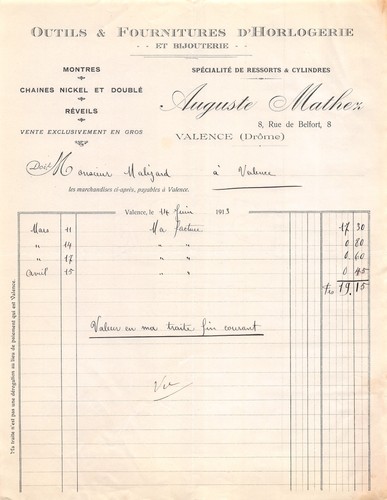 OUTILS & FOURNITURES D'HORLOGERIE
- - ET BIJOUTERIE - -
MONTRES
CHAINES NICKEL ET DOUBLÉ
RÉVEILS
VENTE EXCLUSIVEMENT EN GROS
SPÉCIALITÉ DE RESSORTS & CYLINDRES
Auguste Mathez
8, Rue de Belfort, 8
VALENCE (Drôme)
Doit Monsieur Malizard à Valence
les marchandises ci-après, payables à Valence.
Valence, le 14 Juin 1913
Mars 11 Ma facture 17 30
" 14 " " 0.80
" 17 " " 0.60
Avril 15 " " 0.45
19.15
Valeur en ma traite fin courant
Ma traite n'est pas une dérogation au lieu de paiement qui est Valence.